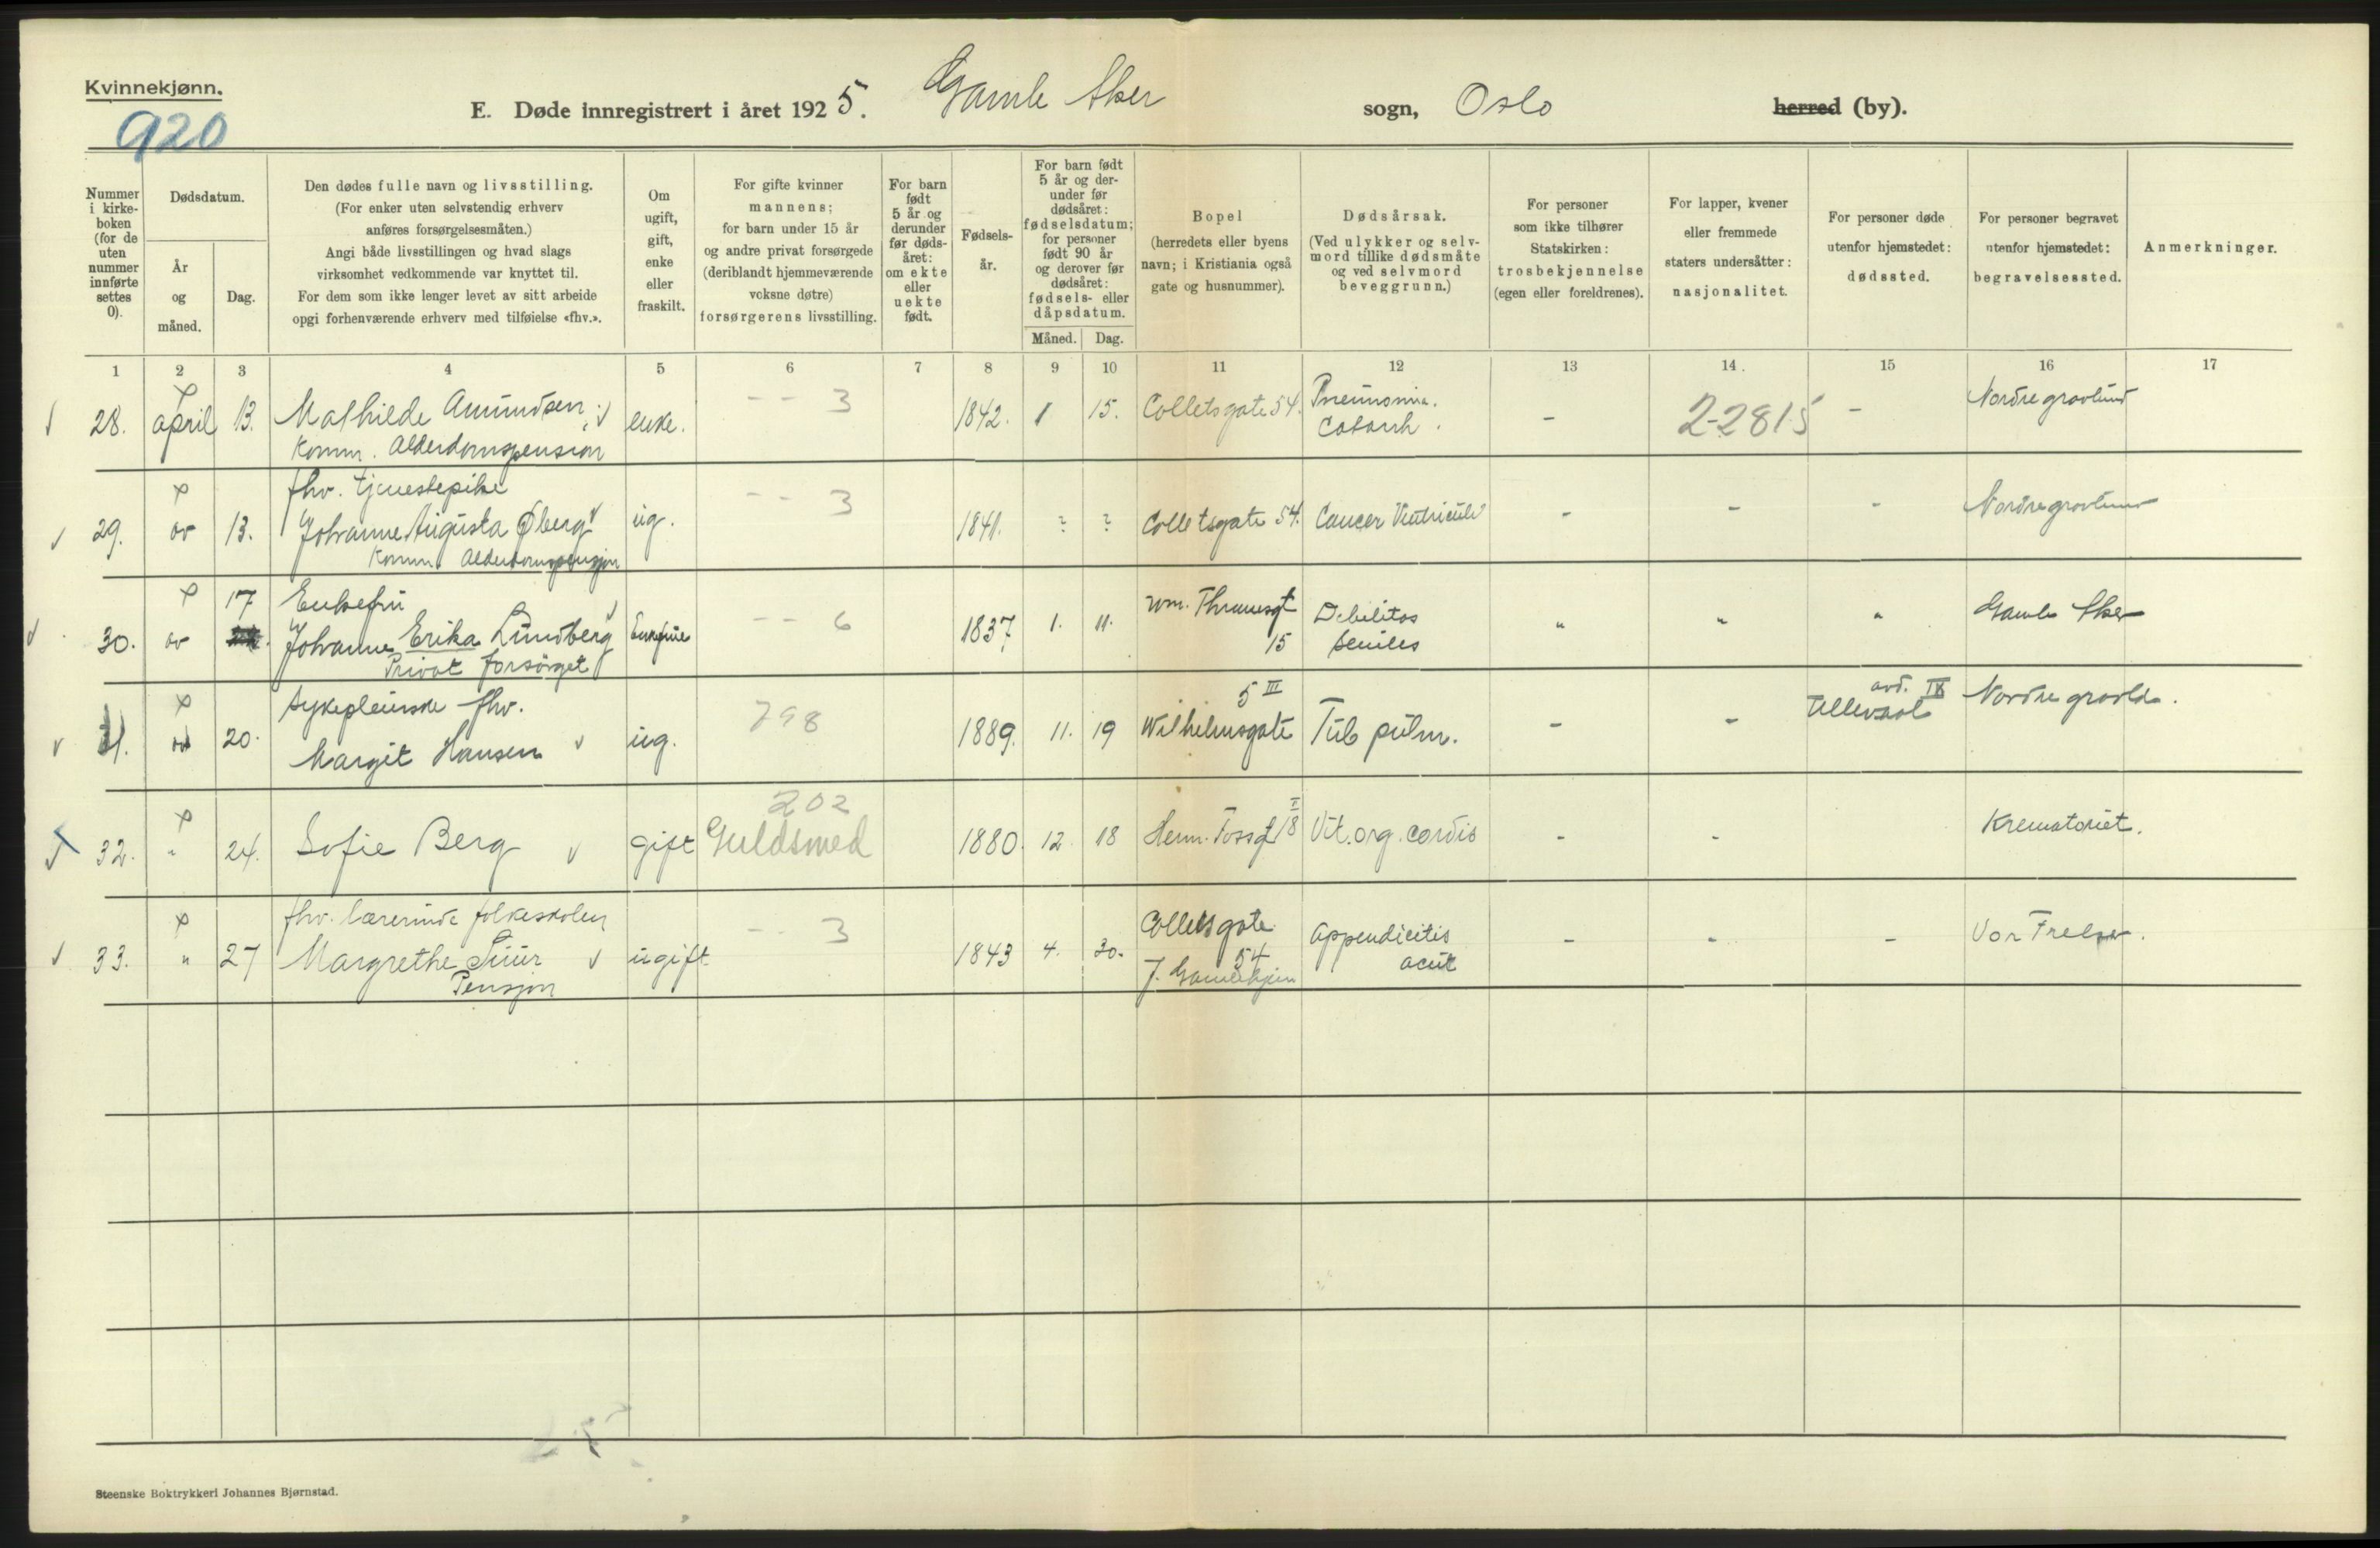 Kvinnekjønn.
920
E. Døde innregistrert i året 1925. Gamle Aker sogn, Oslo herred (by).
Nummer i kirke-boken (for de uten nummer innførte settes 0).
Dødsdatum.
År og måned.
Dag.
Den dødes fulle navn og livsstilling.
(For enker uten selvstendig erhverv
anføres forsørgelsesmåten.)
Angi både livsstillingen og hvad slags
virksomhet vedkommende var knyttet til.
For dem som ikke lenger levet av sitt arbeide
opgi forhenværende erhverv med tilføielse «fhv.».
Om ugift, gift, enke eller fraskilt.
For gifte kvinner
mannens;
for barn under 15 år
og andre privat forsørgede
(deriblandt hjemmeværende
voksne døtre)
forsørgerens livsstilling.
For barn født 5 år og derunder før døds-året: om ekte eller uekte født.
Fødsels-år.
For barn født 5 år og der-under før dødsåret: fødselsdatum; for personer født 90 år og derover før dødsåret: fødsels- eller dåpsdatum.
Måned. Dag.
Bopel
(herredets eller byens
navn; i Kristiania også
gate og husnummer).
Dødsårsak.
(Ved ulykker og selv-
mord tillike dødsmåte
og ved selvmord
beveggrunn.)
For personer
som ikke tilhører
Statskirken:
trosbekjennelse
(egen eller foreldrenes).
For lapper, kvener
eller fremmede
staters undersåtter:
nasjonalitet.
For personer døde
utenfor hjemstedet:
dødssted.
For personer begravet
utenfor hjemstedet:
begravelsessted.
Anmerkninger.
1 2 3 4 5 6 7 8 9 10 11 12 13 14. 15 16 17
28. april 13. Mathilde Amundsen enke. - - 3 1842. 1 15. Colletsgate 54. Pneumonia. - 2-2815 - Nordre gravlund
Komm. Alderdomspension Catarrh.
fhv. tjenestepike
29. " 13. Johanne Augusta Øberg ug. - - 3 1841. ? ? Colletsgate 54. Cancer Ventriculi - - - Nordre gravlund
Komm. Alderdomspensjon
17 Enkefru
30. " Johanne Erika Lundberg Enkefrue - - 6 1837 1. 11. Thranesgt 15 Debilitas senilis " " " Gamle Aker
Privat forsørget
sykepleierske fhv. 5 III avd. IX
20. Margit Hansen ug. 798 1889. 11. 19 Wilhelmsgate Tub pulm. - - Ullevaal Nordre gravld.
202
32. " 24. Sofie Berg gift Guldsmed 1880. 12 18 Herm. Fossgt 18 I Vit. org. cordis - - Krematoriet.
fhv. lærerinde folkeskolen
33. " 27 Margrethe Tuur ugift - - 3 1843 4. 30. Colletsgate 54 Appendicitis acut - - - Vor Frelser.
Pensjon
Steenske Boktrykkeri Johannes Bjørnstad.